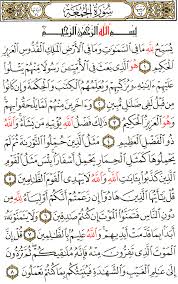 سُورَةُ الجُمُعَةِ
بِسْمِ ٱللَّهِ ٱلرَّحْمَٰنِ ٱلرَّحِيمِ
يُسَبِّحُ لِلَّهِ مَا فِي ٱلسَّمَٰوَٰتِ وَمَا فِي ٱلْأَرْضِ ٱلْمَلِكِ ٱلْقُدُّوسِ ٱلْعَزِيزِ
ٱلْحَكِيمِ ١ هُوَ ٱلَّذِي بَعَثَ فِي ٱلْأُمِّيِّـۧنَ رَسُولًا مِّنْهُمْ يَتْلُوا۟
عَلَيْهِمْ ءَايَٰتِهِۦ وَيُزَكِّيهِمْ وَيُعَلِّمُهُمُ ٱلْكِتَٰبَ وَٱلْحِكْمَةَ وَإِن كَانُوا۟
مِن قَبْلُ لَفِي ضَلَٰلٍ مُّبِينٍ ٢ وَءَاخَرِينَ مِنْهُمْ لَمَّا يَلْحَقُوا۟ بِهِمْ
وَهُوَ ٱلْعَزِيزُ ٱلْحَكِيمُ ٣ ذَٰلِكَ فَضْلُ ٱللَّهِ يُؤْتِيهِ مَن يَشَآءُ وَٱللَّهُ
ذُو ٱلْفَضْلِ ٱلْعَظِيمِ ٤ مَثَلُ ٱلَّذِينَ حُمِّلُوا۟ ٱلتَّوْرَىٰةَ ثُمَّ لَمْ
يَحْمِلُوهَا كَمَثَلِ ٱلْحِمَارِ يَحْمِلُ أَسْفَارًۢا بِئْسَ مَثَلُ ٱلْقَوْمِ
ٱلَّذِينَ كَذَّبُوا۟ بِـَٔايَٰتِ ٱللَّهِ وَٱللَّهُ لَا يَهْدِي ٱلْقَوْمَ ٱلظَّٰلِمِينَ ٥
قُلْ يَٰٓأَيُّهَا ٱلَّذِينَ هَادُوٓا۟ إِن زَعَمْتُمْ أَنَّكُمْ أَوْلِيَآءُ لِلَّهِ مِن
دُونِ ٱلنَّاسِ فَتَمَنَّوُا۟ ٱلْمَوْتَ إِن كُنتُمْ صَٰدِقِينَ ٦ وَلَا يَتَمَنَّوْنَهُۥٓ
أَبَدًۢا بِمَا قَدَّمَتْ أَيْدِيهِمْ وَٱللَّهُ عَلِيمٌۢ بِٱلظَّٰلِمِينَ ٧ قُلْ إِنَّ
ٱلْمَوْتَ ٱلَّذِي تَفِرُّونَ مِنْهُ فَإِنَّهُۥ مُلَٰقِيكُمْ ثُمَّ تُرَدُّونَ
إِلَىٰ عَٰلِمِ ٱلْغَيْبِ وَٱلشَّهَٰدَةِ فَيُنَبِّئُكُم بِمَا كُنتُمْ تَعْمَلُونَ ٨